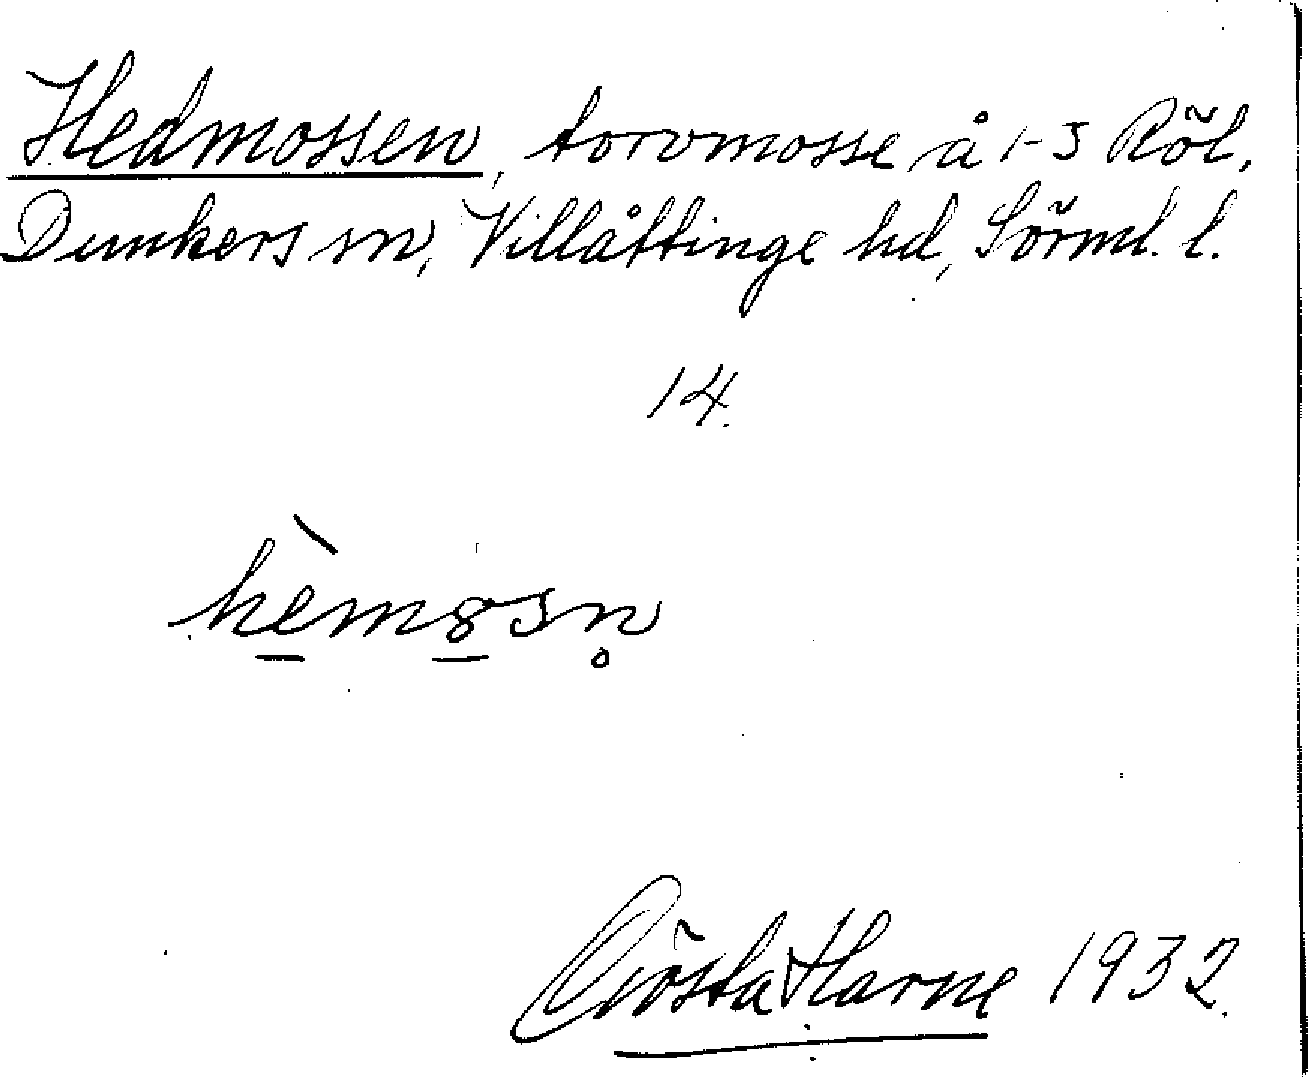 Hedmossen, torvmosse å 1-5 Röl,
Dunkers sn, Villåttinge hd, Sörml. l.
14.
hèmȣsn̥
Gösta Harne 1932.